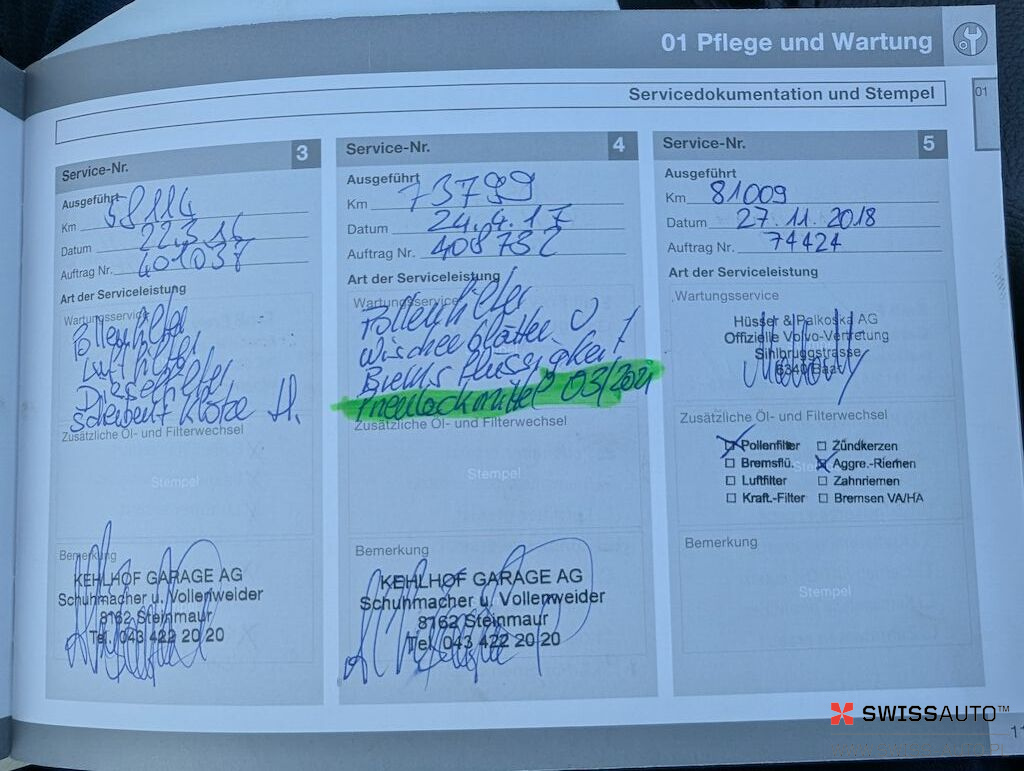 01 Pflege und Wartung
01
Servicedokumentation und Stempel
Service-Nr. 3
Ausgeführt
Km 58114
Datum 22.3.16
Auftrag Nr. 401037
Art der Serviceleistung
Wartungsservice
Pollenfilter
Luftfilter
Dieselfilter
Scheiben+Klötze H.
Zusätzliche Öl- und Filterwechsel
Stempel
Bemerkung
KEHLHOF GARAGE AG
Schuhmacher u. Vollenweider
8162 Steinmaur
Tel. 043 422 20 20
Service-Nr. 4
Ausgeführt
Km 73799
Datum 24.4.17
Auftrag Nr. 408732
Art der Serviceleistung
Wartungsservice
Pollenfilter
Wischerblätter
Brems flüssigkeit
03/2021
Zusätzliche Öl- und Filterwechsel
Stempel
Bemerkung
KEHLHOF GARAGE AG
Schuhmacher u. Vollenweider
8162 Steinmaur
Tel. 043 422 20 20
Service-Nr. 5
Ausgeführt
Km 81009
Datum 27.11.2018
Auftrag Nr. 74424
Art der Serviceleistung
Wartungsservice
Hüsser & Palkoska AG
Offizielle Volvo-Vertretung
Sihlbruggstrasse
6340 Baar
Zusätzliche Öl- und Filterwechsel
Pollenfilter Zündkerzen
Bremsflü. Aggre.-Riemen
Luftfilter Zahnriemen
Kraft.-Filter Bremsen VA/HA
Bemerkung
Stempel
SWISSAUTO™
11